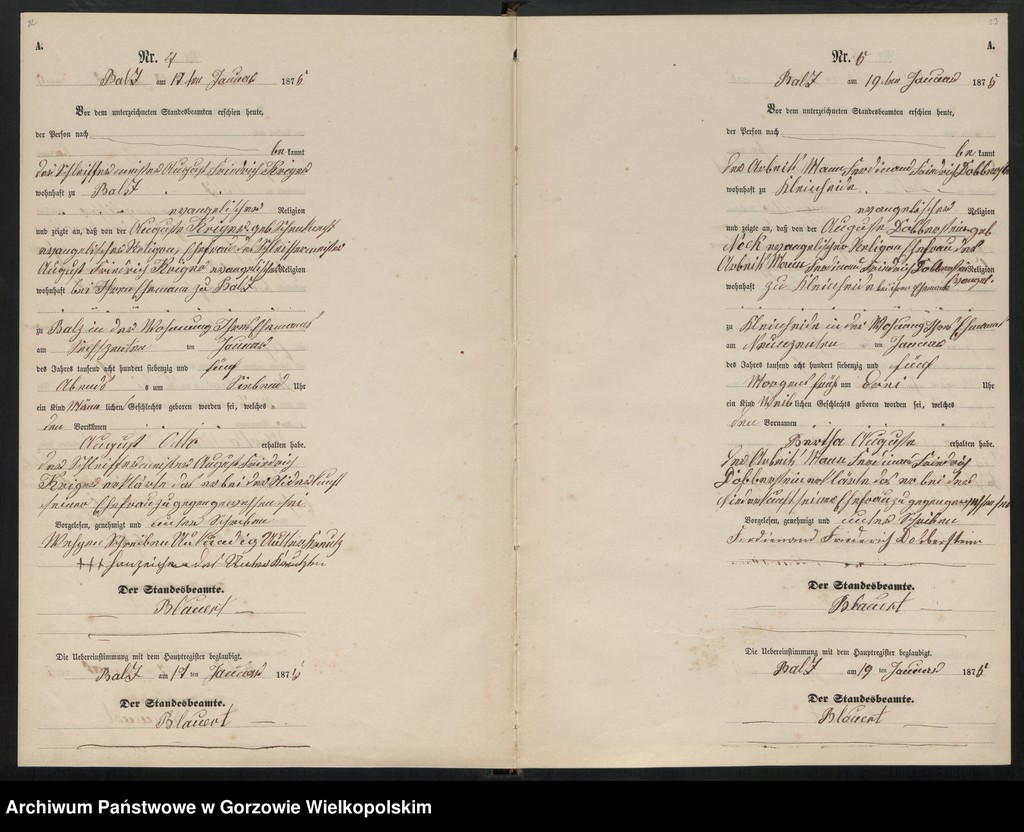 A.
Nr. 4
Balz am 17 ten Januar 1875
Vor dem unterzeichneten Standesbeamten erschien heute,
der Person nach
be kannt
der Schleiffermeister August Friedrich Kriger
wohnhaft zu Balz
evangelischer Religion
und zeigte an, daß von der Auguste Kriger geb
evangelischer Religon, Ehefrau des Schleiffermeister
August Friedrich Kriger evangelischer Religion
wohnhaft bei Ihrem Ehemann zu Balz
zu Balz in der Wohnung Ihres Ehemans
am Sechszenten ten Januar
des Jahres tausend acht hundert siebenzig und fünf
Abends s um Sieben Uhr
ein Kind Männ lichen Geschlechts geboren worden sei, welches
den Vornamen
August Otto erhalten habe.
der Schleiffermeister August Friedrich
Kriger erklärte das er bei der Niderkunft
seiner Ehefrau zugegen gewessen sei
Vorgelesen, genehmigt und unter Schriben
Wegen Schreiben
+++ Hanzeichen
Der Standesbeamte.
Blauert
Die Uebereinstimmung mit dem Hauptregister beglaubigt.
Balz am 17 ten Januar 1875
Der Standesbeamte.
Blauert
23
A.
Nr. 5
Balz am 19 ten Januar 1875
Vor dem unterzeichneten Standesbeamten erschien heute,
der Person nach
be kannt
Der Arbeits Mann Ferdinand Friedrich Dobberstein
wohnhaft zu Kleinheide
evangelischer Religion
und zeigte an, daß von der Auguste Dobberstein geb
Nock evangelischer Religon Ehefrau des
Arbeits Mann Ferdinand Friedrich Dobberstein Religion
wohnhaft zu Kleinheide bei ihrem Ehemanne evangel.
zu Kleinheide in der Wohnung Ihres Ehemanns
am Neunzenten ten Januar
des Jahres tausend acht hundert siebenzig und fünf
Morgens früh um Drei Uhr
ein Kind Weib lichen Geschlechts geboren worden sei, welches
den Vornamen
Bertha Auguste erhalten habe.
Der Arbeits Mann Ferdinand Friedrich
Dobberstein erklärte das er bei der
Niederkunft seine Ehefrau zugegen gewessen sei
Vorgelesen, genehmigt und unter Schriben
Ferdienand Friederich Dobberstein
Der Standesbeamte.
Blauert
Die Uebereinstimmung mit dem Hauptregister beglaubigt.
Balz am 19 ten Januar 1875
Der Standesbeamte.
Blauert
Archiwum Państwowe w Gorzowie Wielkopolskim